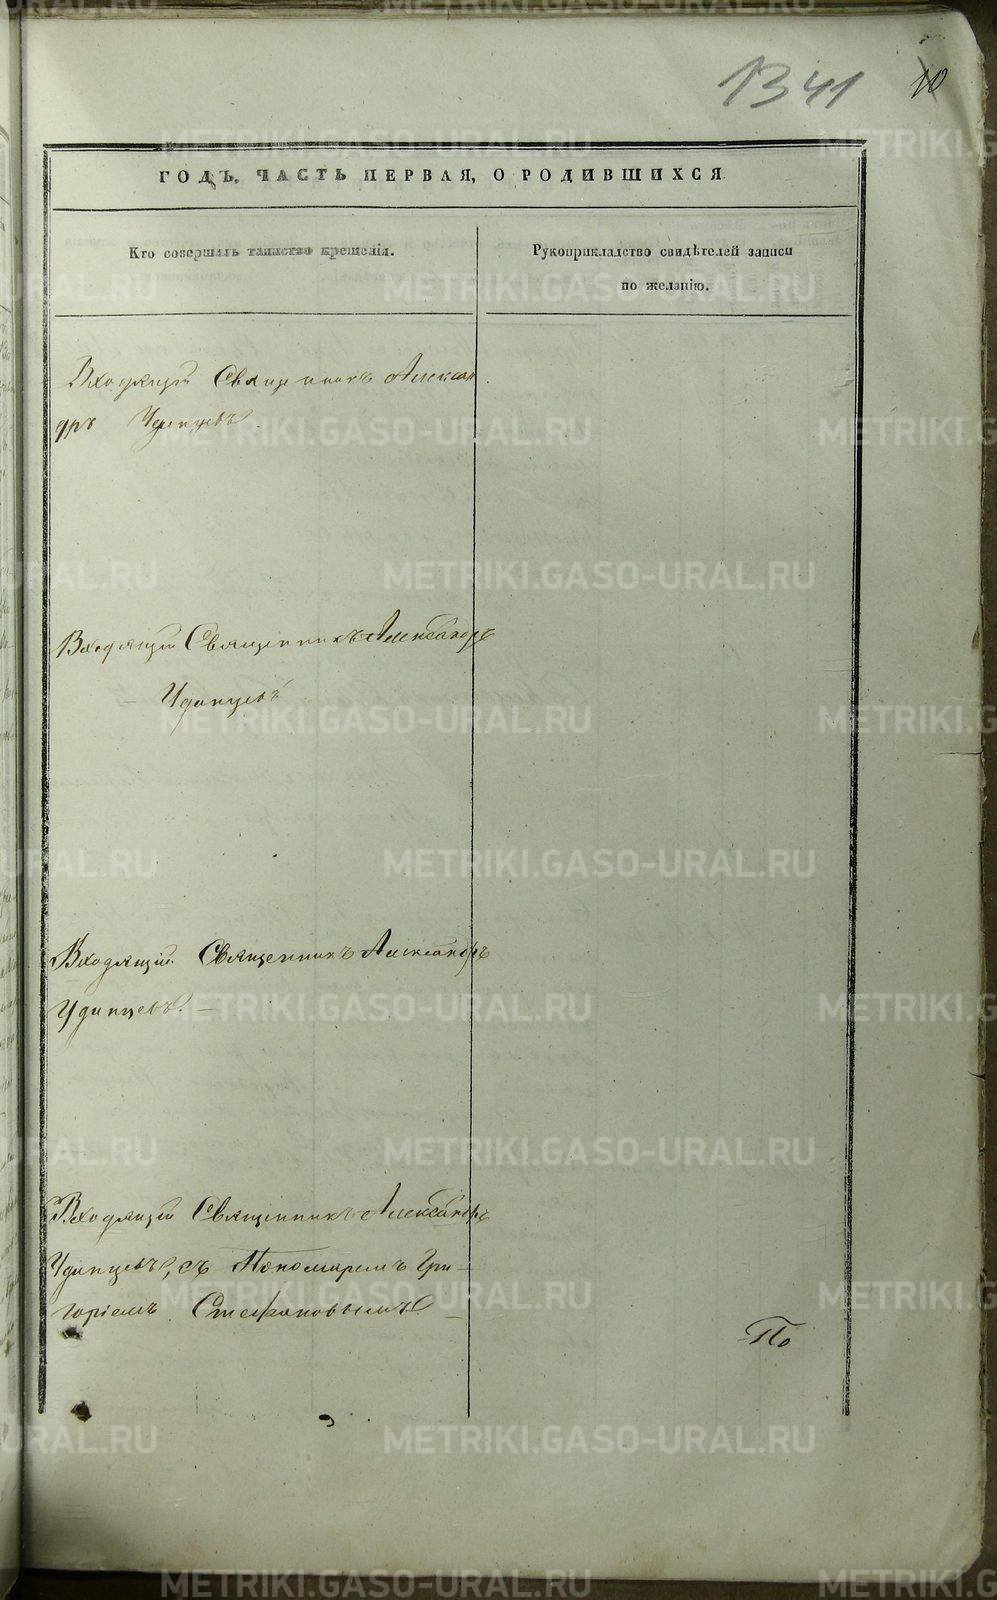 1341
10
ГОДЪ, ЧАСТЬ ПЕРВАЯ, О РОДИВШИХСЯ
Кто совершалъ таинство крещенія.
Рукоприкладство свидѣтелей записи
по желанію.
Входящій Священникъ Алексан
дръ Удинцевъ.
Входящій Священникъ Александръ
Удинцевъ
Входящій Священникъ Александръ
Удинцевъ. —
Входящій Священникъ Александръ
Удинцевъ, съ Пономаремъ Гри
горіемъ Стефановымъ —
По
METRIKI.GASO-URAL.RU